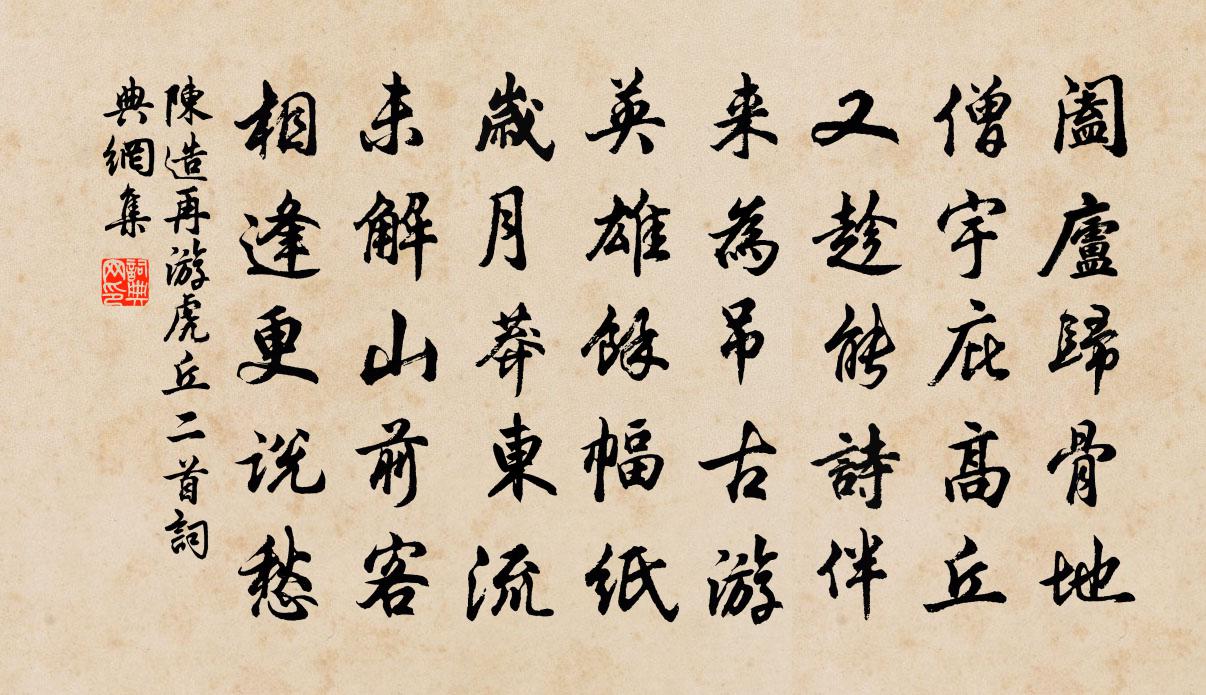 阖廬歸骨地
僧宇庇高丘
又趁能詩伴
来為吊古游
英雄餘幅紙
歲月莽東流
未解山前客
相逢更説愁
陳造再游虎丘二首詞
典網集
詞典
网印